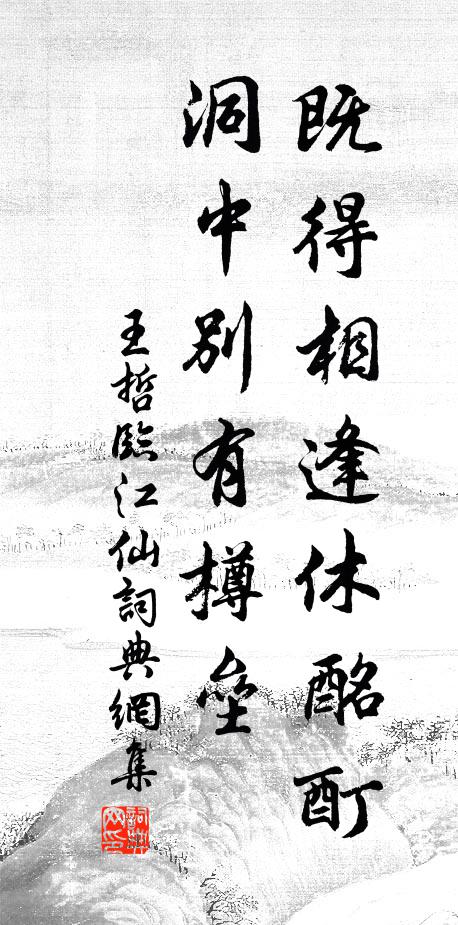 既得相逢休酩酊
洞中别有樽垒
王哲臨江仙詞典網集